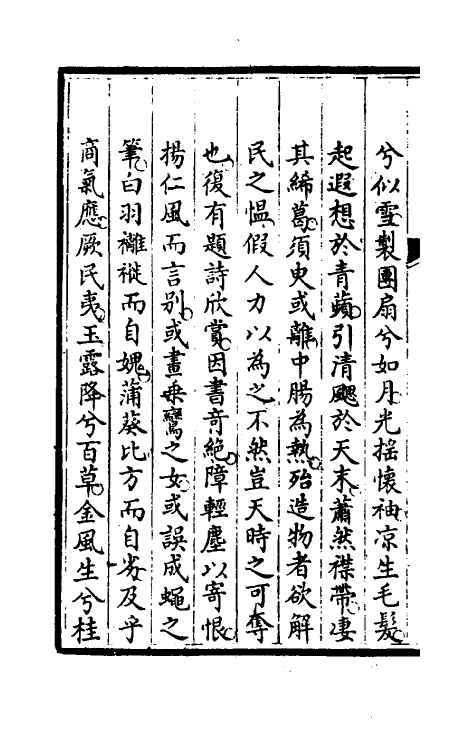 兮似雪製團扇兮如月光摇懷袖凉生毛髮
起遐想於青蘋引清飔於天末蕭然襟帶凄
其絺葛須臾或離中腸為熱殆造物者欲解
民之愠假人力以為之不然豈天時之可奪
也復有題詩欣賞因書竒絶障輕塵以寄恨
揚仁風而言别或畫乗鸞之女或誤成蝇之
筆白羽襹褷而自媿蒲葵比方而自劣及乎
商氣應厥民夷玉露降兮百草金風生兮桂